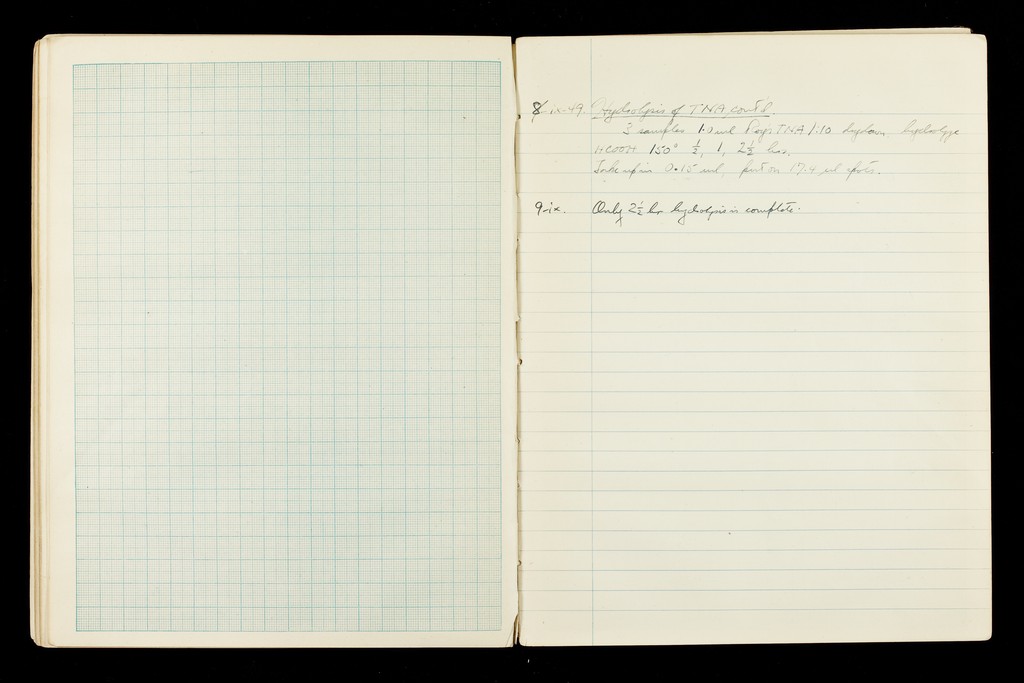 8-ix-49. Hydrolysis of TNA cont'd.
3 samples 1.0 ml TNA 1:10 dry down, hydrolyze
HCOOH 150° ½, 1, 2½ hrs.
Take up in 0.15 ml, put on 17.4 µl spots.
9-ix. Only 2½ hr hydrolysis is complete.